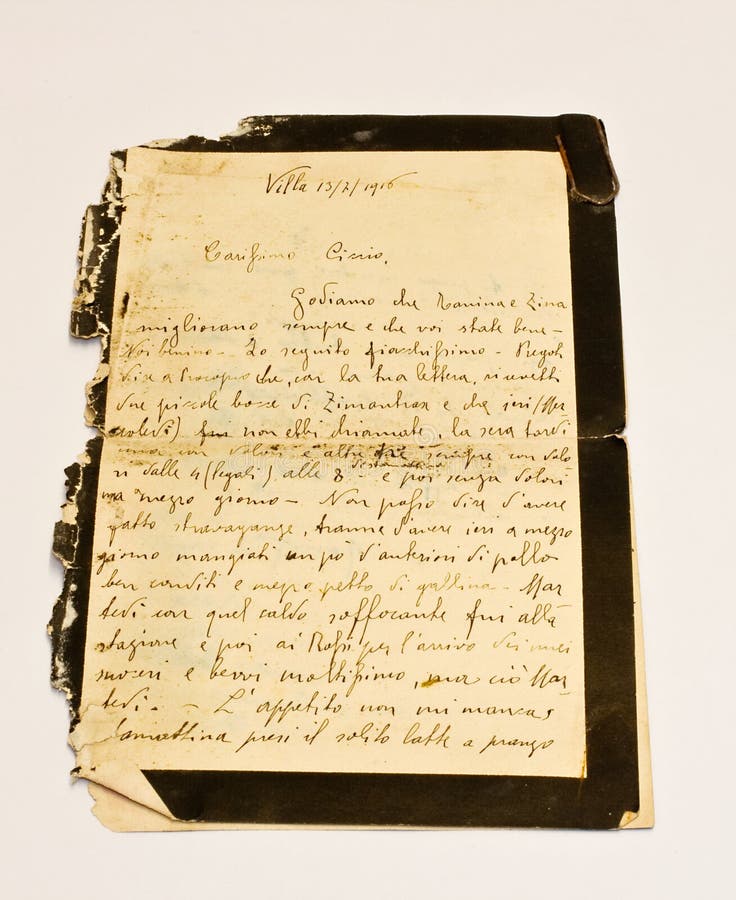 Villa 13/7/1916
Carissimo Ciccio,
Godiamo che Nanina e Zina
migliorano sempre e che voi state bene -
Noi benino - Io seguito fiacchissimo - Pregoti
dire a Procopio che, con la tua lettera, ricevetti
due piccole bocce di e che ieri (Mer
coledì) non ebbi chiamate la sera tardi
una con dolori e altre tre sempre con dolo
ri dalle 4 (legali) alle 8 - e poi senza dolori
ma a mezzo giorno - Non posso dire d'avere
fatto stravaganze, tranne d'avere ieri a mezzo
giorno mangiati un pò d'anteriori di pollo
ben conditi e mezzo petto di gallina - Mar
tedì con quel caldo soffocante fui alla
stazione e poi ai Rossi per l'arrivo dei miei
suoceri e bevvi moltissimo, ma ciò Mar
tedì. - L'appetito non mi manca
stamattina presi il solito latte a pranzo